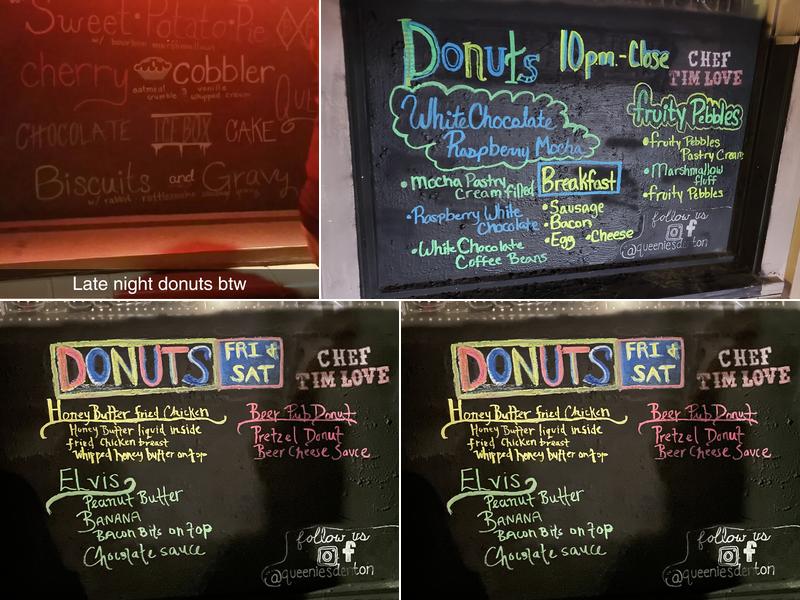 Sweet • Potato • Pie
w/ bourbon marshmallows
cherry cobbler
oatmeal crumble & vanilla whipped cream
CHOCOLATE ICEBOX CAKE
Biscuits and Gravy
w/ rabbit rattlesnake
Late night donuts btw
Donuts 10pm - Close
CHEF
TIM LOVE
White Chocolate
Raspberry Mocha
• Mocha Pastry
Cream filled
• Raspberry White
Chocolate
• White Chocolate
Coffee Beans
Breakfast
• Sausage
• Bacon
• Egg • Cheese
fruity Pebbles
• fruity Pebbles
Pastry Cream
• Marshmallow
fluff
• fruity Pebbles
follow us
@queeniesdenton
DONUTS FRI &
SAT
CHEF
TIM LOVE
Honey Butter fried Chicken
Honey Butter liquid inside
fried Chicken breast
whipped honey butter on top
Beer Pub Donut
Pretzel Donut
Beer Cheese Sauce
ELvis
Peanut Butter
BANANA
BACON Bits on Top
Chocolate sauce
follow us
@queeniesdenton
DONUTS FRI &
SAT
CHEF
TIM LOVE
Honey Butter fried Chicken
Honey Butter liquid inside
fried Chicken breast
whipped honey butter on top
Beer Pub Donut
Pretzel Donut
Beer Cheese Sauce
ELvis
Peanut Butter
BANANA
BACON Bits on Top
Chocolate sauce
follow us
@queeniesdenton